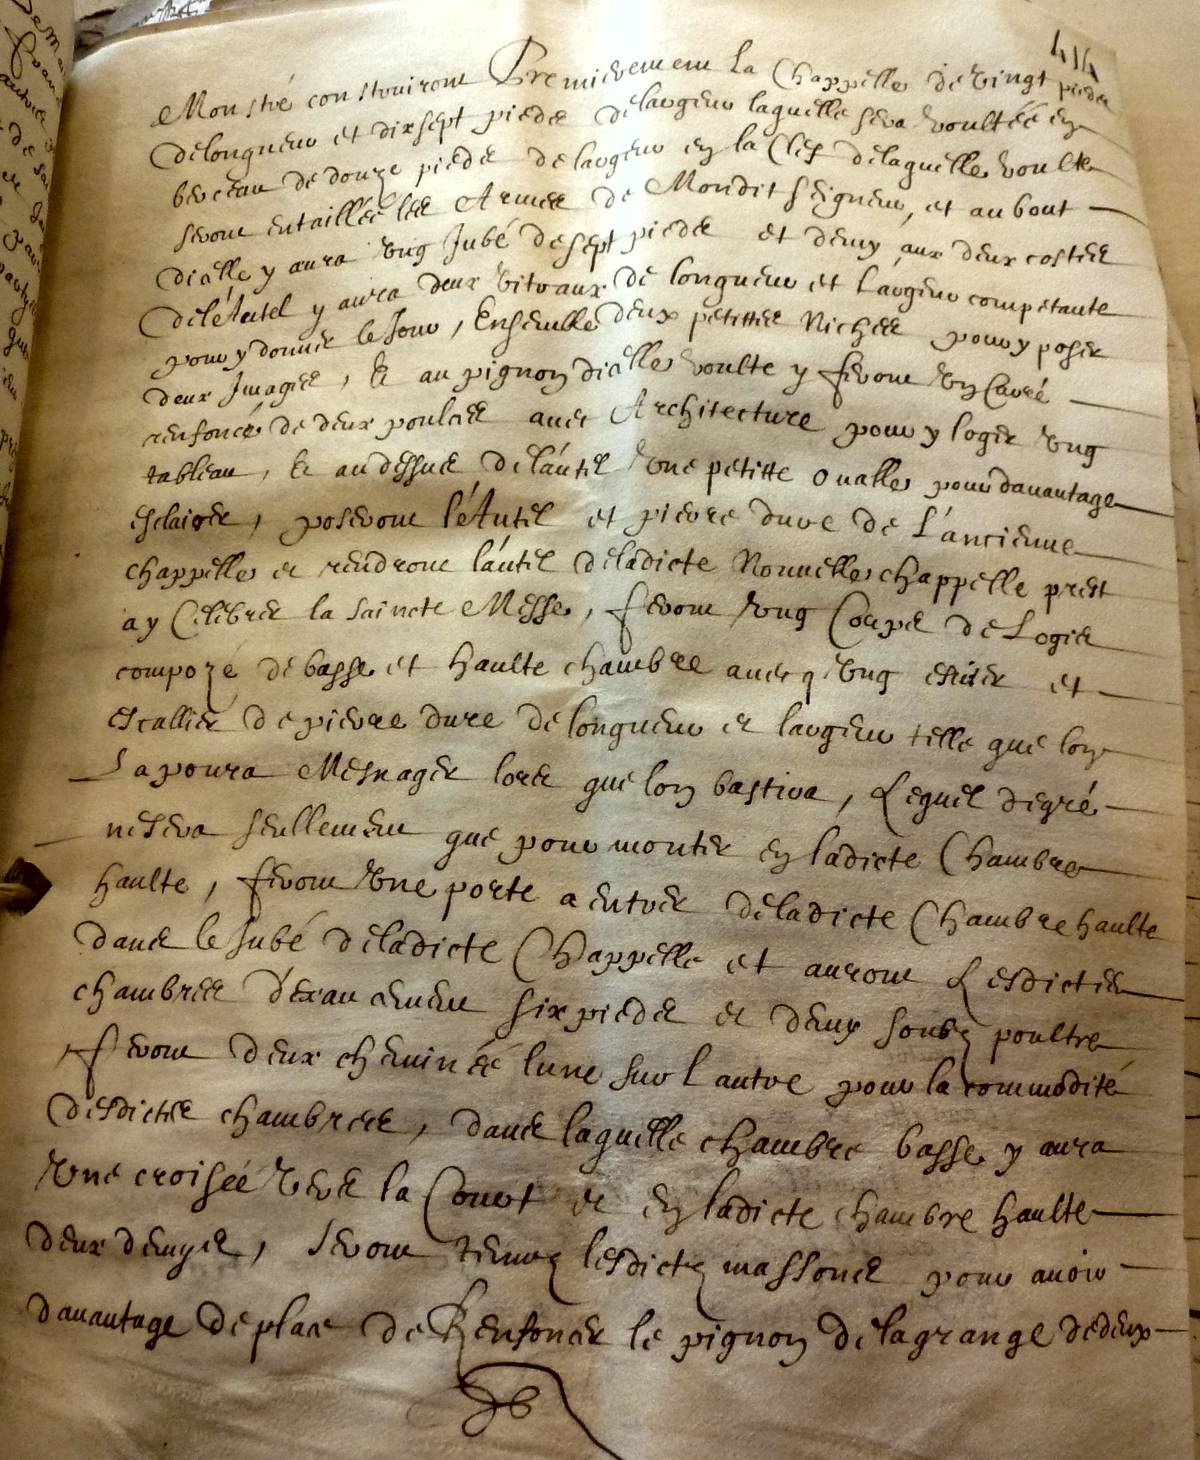 414
Monstré construiront Premierement la Chappelle de vingt piedz
de longueur et dixsept piedz de largeur laquelle sera voultéé en
berceau de douze piedz de largeur en la Clef de laquelle voulte
seront entaillées les Armes de Mondit Seigneur, et au bout
dicelle y aura vng Jubé de sept piedz et demy, aux deux costez
de l'Autel y aura deux vitraux de longueur et largeur competante
pour y donner le Jour, Ensemble deux petittes Niches pour y poser
deux Images, Et au pignon dicelle voulte y feront vn Carré
renfoncé de deux poulces avec Architecture pour y loger vng
tableau, Et au dessus de l'autel vne petitte ovalle pour davantage
esclairer, poseront l'Autel et pierre dure de L'antienne
chappelle et rendront l'autel de ladicte Nouvelle chappelle prest
a y Celebrer la saincte Messe, feront vng Corps de Logis
compozé de basse et haulte chambre avecq vng esvier et
escallier de pierre dure de longueur et largeur telle que lon
la poura Mesnager lors que lon bastira, Lequel degré
ne sera seullement que pour monter en ladicte Chambre
haulte, feront vne porte a entrer de ladicte Chambre haulte
dans le Jubé de ladicte Chappelle et auront Lesdictes
chambres d'exaucement six piedz et demy soubz poultre
feront deux cheminéé lune sur l autre pour la commodité
desdictes chambres, dans laquelle chambre basse y aura
vne croiséé vers la Court et en ladicte chambre haulte
deux demyes, seront tenuz lesdictz massons pour avoir
davantage de place de Renfoncer le pignon de la grange de deux